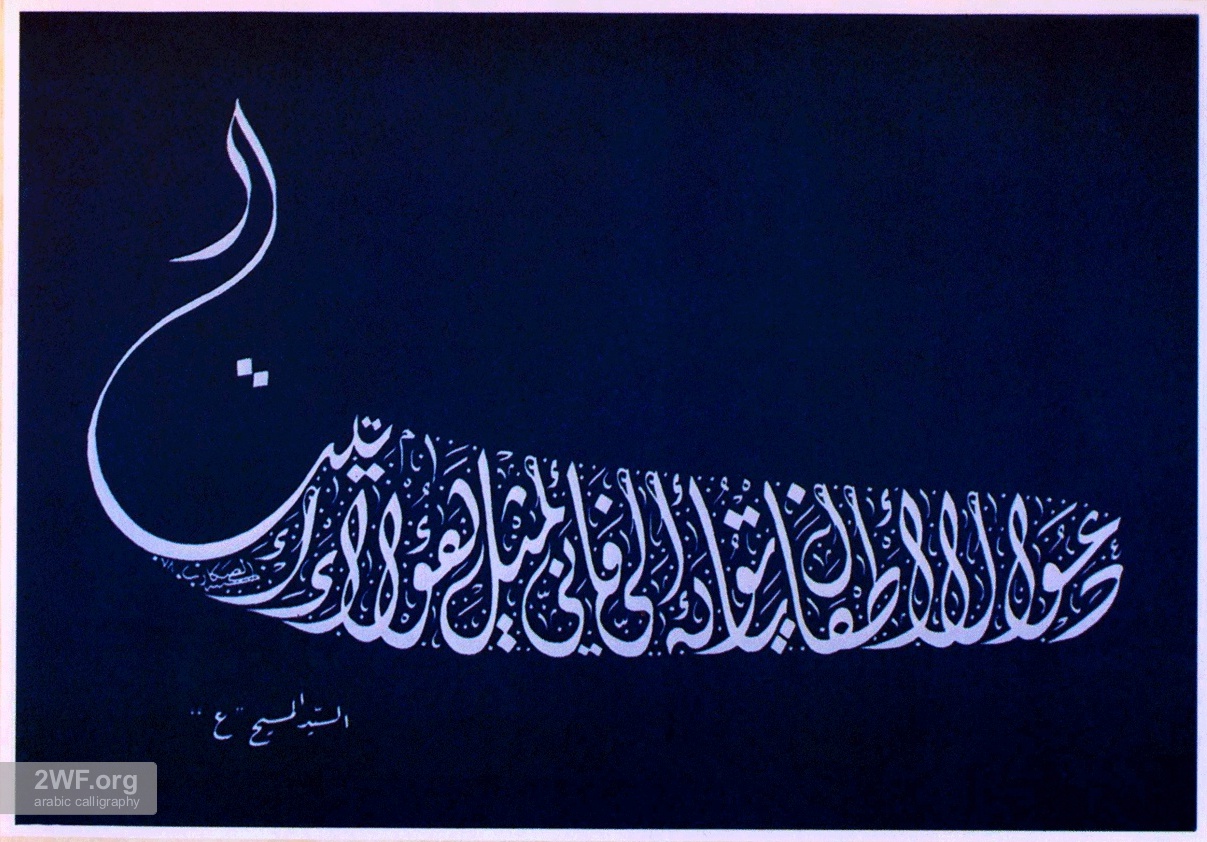 دعوا الأطفال يأتوا إليّ فإني لمثل هؤلاء أتيت
الصكار
السيّد المسيح "ع"
2WF.org
arabic calligraphy